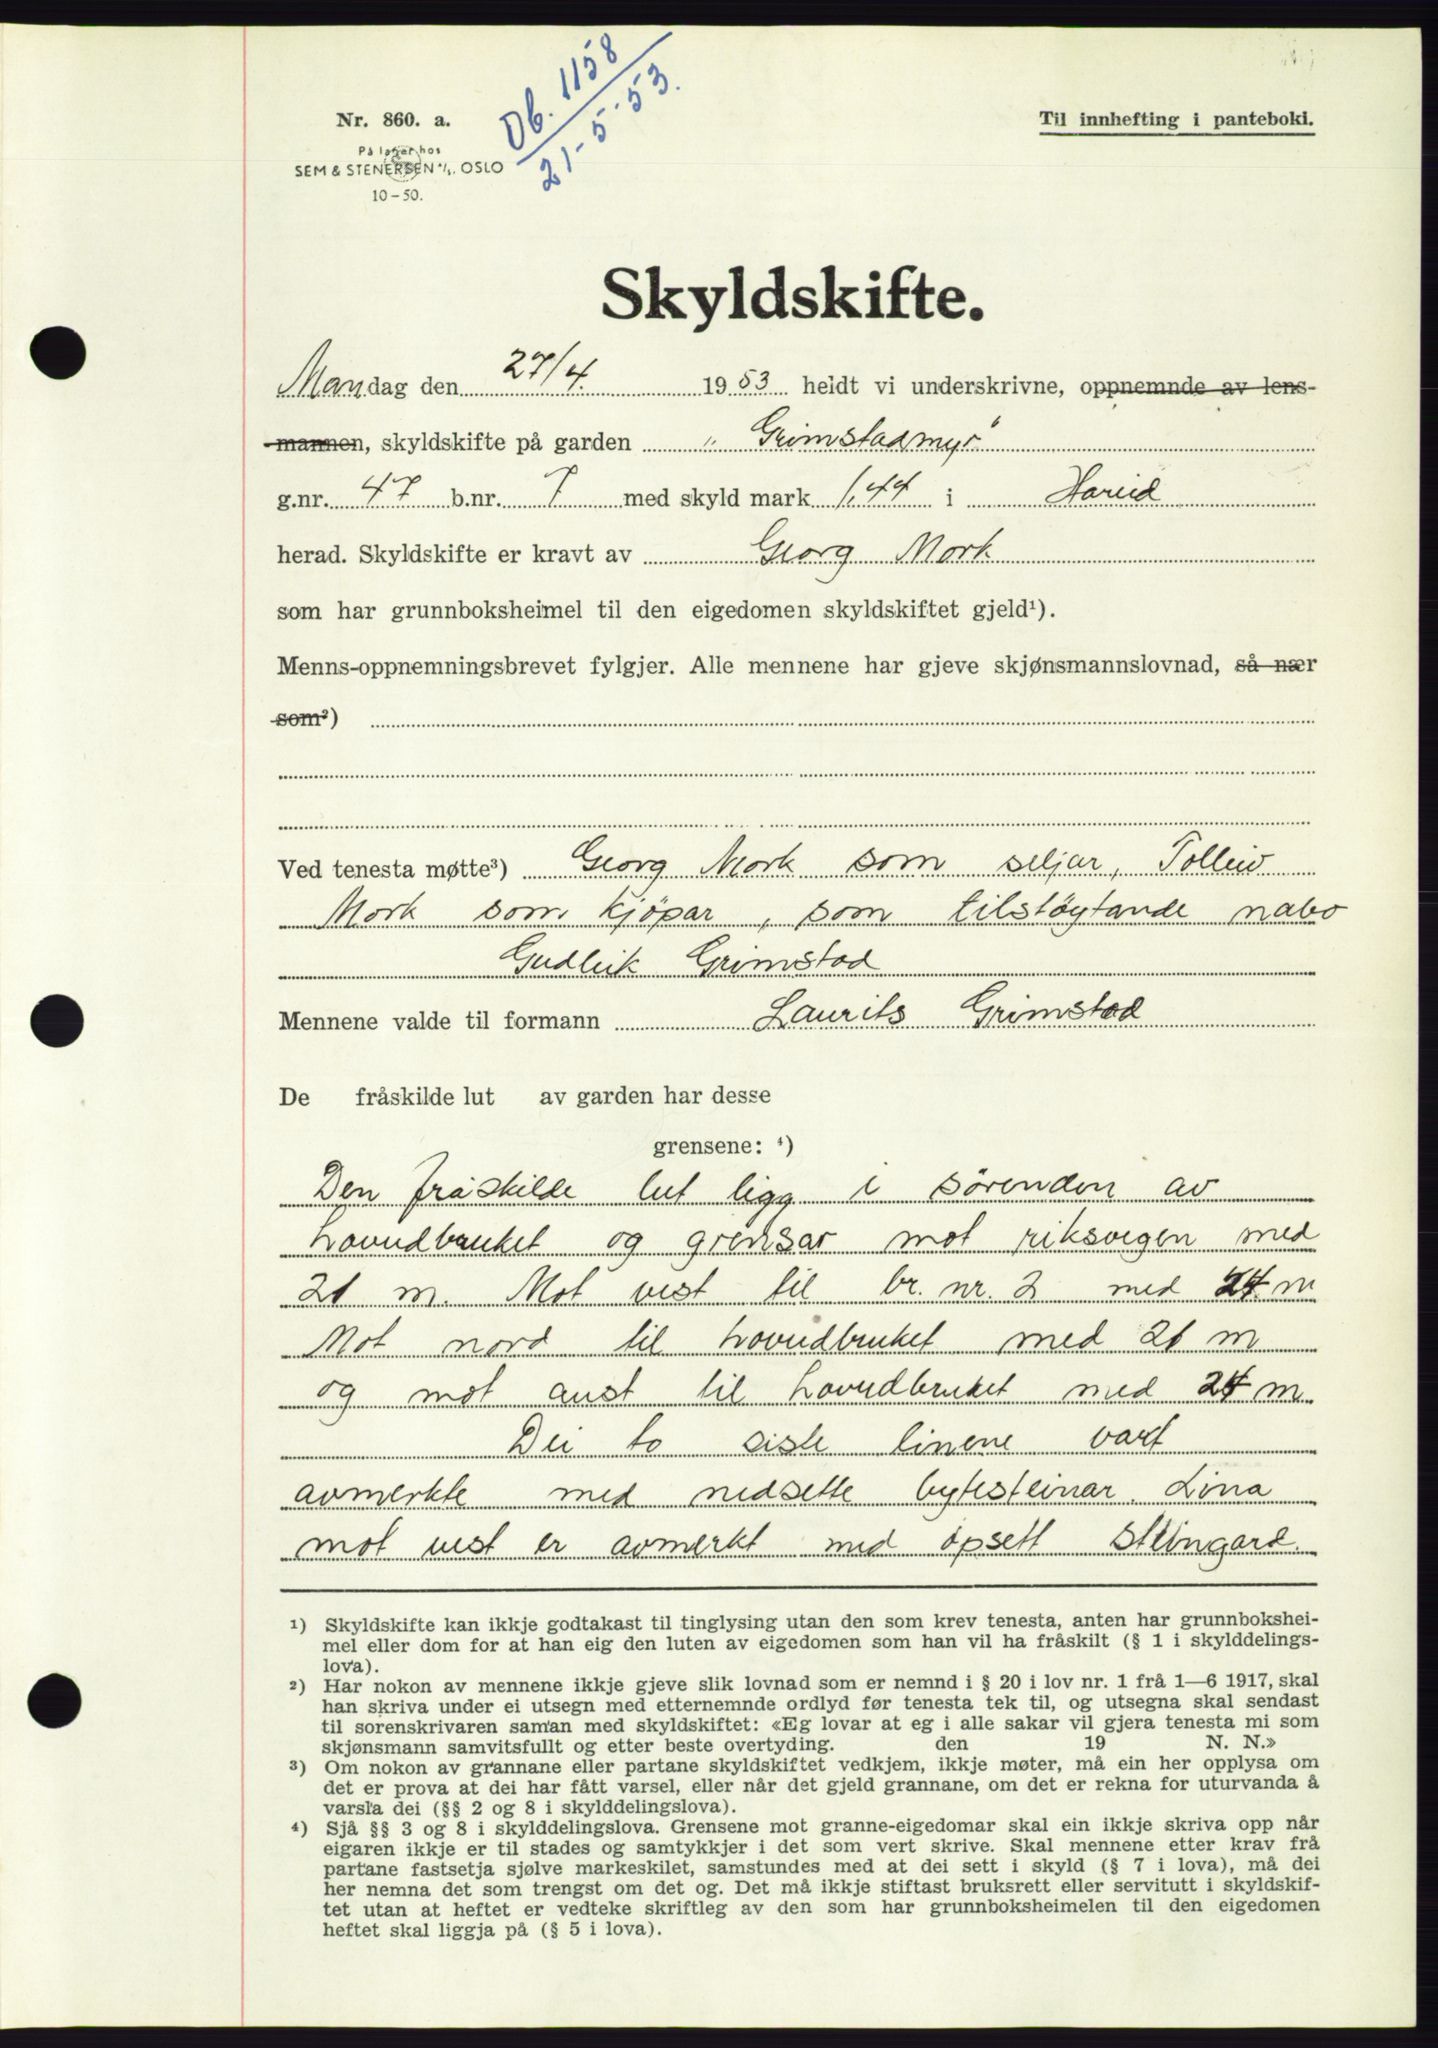 Db. 1158
21-5-53.
Nr. 860. a.
Til innhefting i panteboki.
På lager hos
SEM & STENERSEN A/S. OSLO
10-50.
Skyldskifte.
Mandag den 27/4. 1953 heldt vi underskrivne, oppnemnde av lens-
mannen, skyldskifte på garden „Grimstadmyr"
g.nr. 47 b.nr. 7 med skyld mark 1,44 i Hareid
herad. Skyldskifte er kravt av Georg Mork
som har grunnboksheimel til den eigedomen skyldskiftet gjeld¹).
Menns-oppnemningsbrevet fylgjer. Alle mennene har gjeve skjønsmannslovnad, så nær
som²)
Ved tenesta møtte³) Georg Mork som seljar, Tolleiv
Mork som kjøpar, som tilstøytande nabo
Gudleik Grimstad
Mennene valde til formann Laurits Grimstad
De fråskilde lut av garden har desse
grensene: ⁴)
Den fråskilde lut ligg i sörenden av
hovudbruket og grensar mot riksvegen med
21 m. Mot vest til br. nr. 2 med 24 m
Mot nord til hovudbruket med 21 m
og mot aust til hovudbruket med 24 m.
Dei to siste linene vart
avmerkte med nedsette bytesteinar. Lina
mot vest er avmerkt med opsett steingard.
¹) Skyldskifte kan ikkje godtakast til tinglysing utan den som krev tenesta, anten har grunnbokshei-
mel eller dom for at han eig den luten av eigedomen som han vil ha fråskilt (§ 1 i skylddelings-
lova).
²) Har nokon av mennene ikkje gjeve slik lovnad som er nemnd i § 20 i lov nr. 1 frå 1—6 1917, skal
han skriva under ei utsegn med etternemnde ordlyd før tenesta tek til, og utsegna skal sendast
til sorenskrivaren saman med skyldskiftet: «Eg lovar at eg i alle sakar vil gjera tenesta mi som
skjønsmann samvitsfullt og etter beste overtyding. den 19 N. N.»
³) Om nokon av grannane eller partane skyldskiftet vedkjem, ikkje møter, må ein her opplysa om
det er prova at dei har fått varsel, eller når det gjeld grannane, om det er rekna for uturvanda å
varsla dei (§§ 2 og 8 i skylddelingslova).
⁴) Sjå §§ 3 og 8 i skylddelingslova. Grensene mot granne-eigedomar skal ein ikkje skriva opp når
eigaren ikkje er til stades og samtykkjer i det som vert skrive. Skal mennene etter krav frå
partane fastsetja sjølve markeskilet, samstundes med at dei sett i skyld (§ 7 i lova), må dei
her nemna det som trengst om det og. Det må ikkje stiftast bruksrett eller servitutt i skyldskif-
tet utan at heftet er vedteke skriftleg av den som har grunnboksheimelen til den eigedomen
heftet skal liggja på (§ 5 i lova).